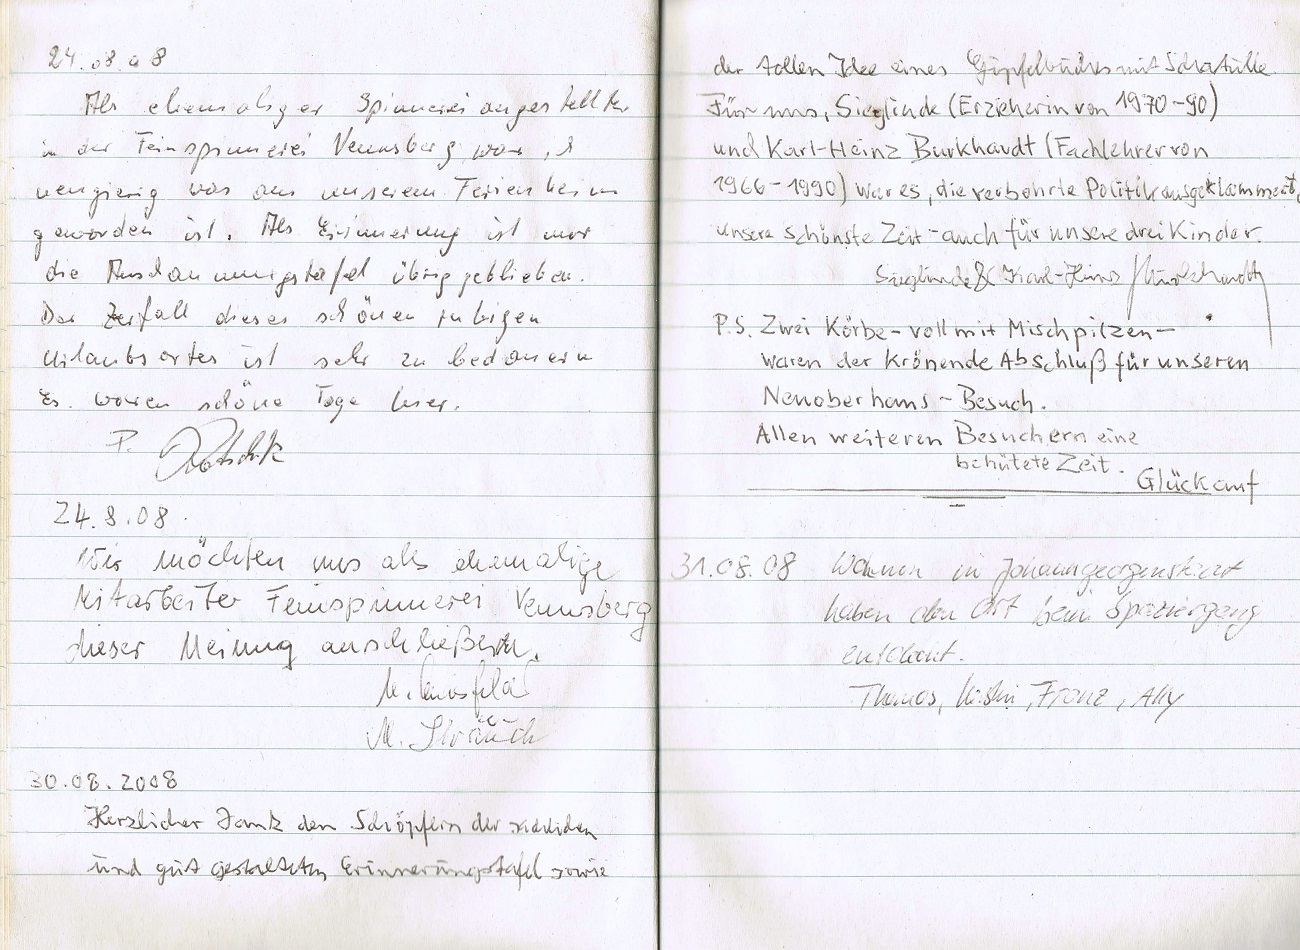 24.08.08
Als ehemaliger Spinnereiangestellter
in der Feinspinnerei Vennsberg war ich
neugierig was aus unserem Ferienheim
geworden ist. Als Erinnerung ist nur
die Anschauungstafel übriggeblieben.
Der Zerfall dieses schönen ruhigen
Urlaubsortes ist sehr zu bedauern
Es waren schöne Tage hier.
P.
24.8.08.
Wir möchten uns als ehemalige
Mitarbeiter Feinspinnerei Vennsberg
dieser Meinung anschließen.
M.
M. Sträuch
30.08.2008
Herzlicher Dank den Schöpfern der soliden
und gut gestalteten Erinnerungstafel sowie
der tollen Idee eines Gipfelbuches mit Schatulle.
Für uns, Sieglinde (Erzieherin von 1970-90)
und Karl-Heinz Burkhardt (Fachlehrer von
1966-1990) war es, die verbohrte Politik ausgeklammert,
unsere schönste Zeit - auch für unsere drei Kinder.
Sieglinde & Karl-Heinz Burkhardt
P.S. Zwei Körbe - voll mit Mischpilzen -
waren der Krönende Abschluß für unseren
Neuoberhaus - Besuch.
Allen weiteren Besuchern eine
behütete Zeit.
Glückauf
31.08.08 Wohnen in Johanngeorgenstadt
haben den Ort beim Spaziergang
entdeckt.
Thomas, Franz, Ally